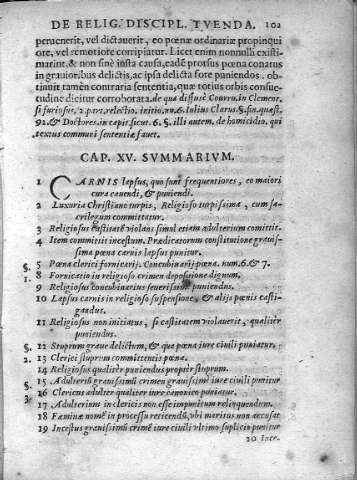 DE RELIG. DISCIPL. TVENDA. 102
peruenerit, vel dictauerit, eo pœnæ ordinariæ propinqui
ore, vel semotiore corripiatur. Licet enim nonnulli existi-
marint, & non sinè iusta causa, eadē prorsus pœna conatus
in grauioribus delictis, ac ipsa delicta fore puniendos. ob-
tinuit tamèn contraria sententia, quæ totius orbis consue-
tudine dicitur corroborata. de qua diffusè Couru. in Clement.
si furiosus, 2. par. relectio. initio, nu. 6. Iulius Clarus. §. fin. quæst.
92. & Doctores. in cap. sicut. 6. §. illi autem. de homicidio. qui
textus communi sententiæ fauet.
CAP. XV. SVMMARIVM.
1 CARNIS lapsus, quo sunt frequentiores, eo maiori
cura cauendi, & puniendi.
2 Luxuria Christiano turpis, Religioso turpissima, cum sa-
crilegum committatur.
3 Religiosus castitatē violans simul etiam adulterium comittit.
4 Item committit incestum. Prædicatorum constitutione grauis-
sima pœna carnis lapsus punitur.
§. 5 Pœna clerici fornicarij. Concubinarij pœna. num. 6. & 7.
1. 8 Fornicatio in religioso crimen depositione dignum.
9 Religiosus concubinarius seuerissimè puniendus.
10 Lapsus carnis in religioso suspensione, & alijs pœnis casti-
gandus.
11 Religiosus non initiatus, si castitatem violauerit, qualiter
puniendus.
§. 12 Stuprum graue delictum, & qua pœna iure ciuili puniatur.
2. 13 Clerici stuprum committentis pœna.
14 Religiosus qualiter puniendus propter stuprum.
§. 15 Adulteriū grauissimū crimen grauissimè iure ciuili punitur
3. 16 Clericus adulter qualiter iure canonico puniatur.
17 Adulterium in clericis non esse impunitum relinquendum.
18 Fæminæ nomē in processu reticendū, vbi maritus non accusat
19 Incestus grauissimū crimē iure ciuili vltimo suplicio punitur
20 Ince-